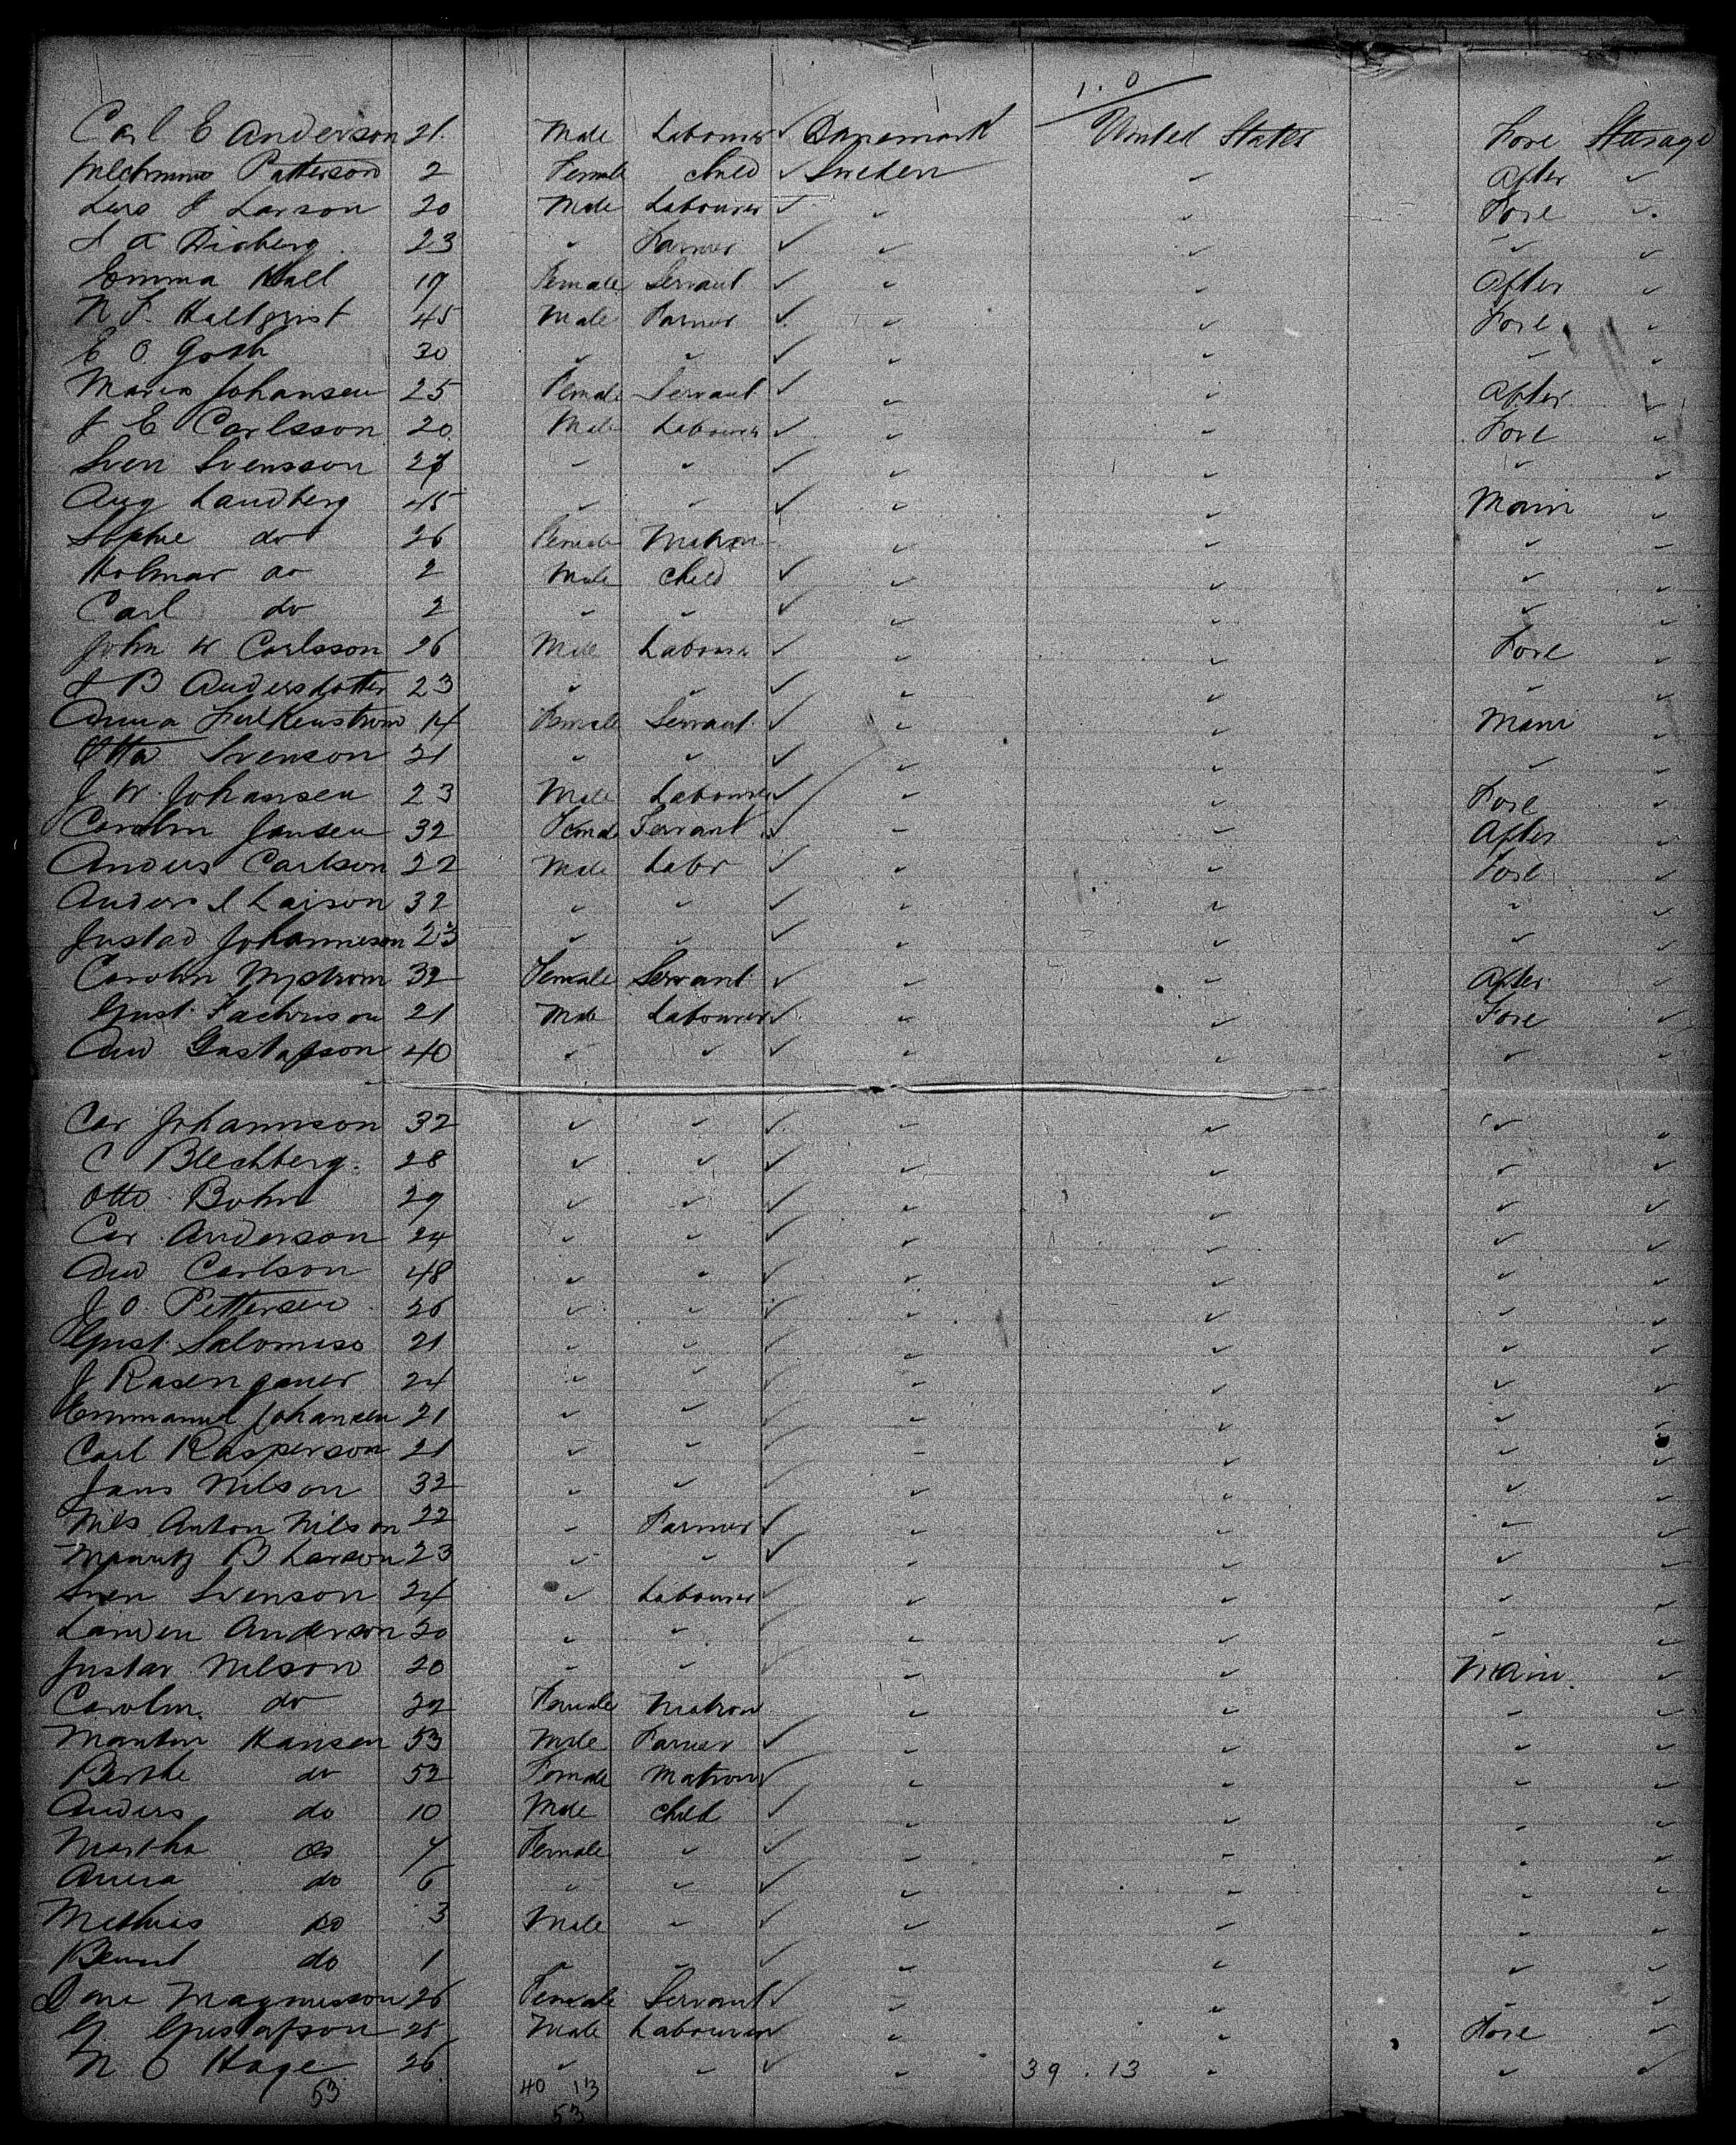 1.0
Carl E Anderson 21 Male Labourer ✓ Danemark United States Fore Steerage
Patterson 2 Female child ✓ Sweden ✓ After ✓
Lars J Larson 20 Male Labourer ✓ ✓ ✓ Fore ✓
23 ✓ Farmer ✓ ✓ ✓ ✓ ✓
Emma Hall 19 Female Servant ✓ ✓ ✓ After ✓
N F. Hallqvist 45 Male Farmer ✓ ✓ ✓ Fore ✓
E O. 30 ✓ ✓ ✓ ✓ ✓ ✓ ✓
Maria Johansen 25 Female Servant ✓ ✓ ✓ After ✓
J E Carlsson 20 Male Labourer ✓ ✓ ✓ Fore ✓
Sven Svensson ✓ ✓ ✓ ✓ ✓ ✓ ✓
Aug Landberg 45 ✓ ✓ ✓ ✓ ✓ Main ✓
Sophie do 26 Female Matron ✓ ✓ ✓ ✓
Holmar do 2 Male child ✓ ✓ ✓ ✓ ✓
Carl do 2 ✓ ✓ ✓ ✓ ✓ ✓ ✓
John W Carlsson 26 Male Labourer ✓ ✓ ✓ Fore ✓
B Andersdotter 23 ✓ ✓ ✓ ✓ ✓ ✓ ✓
Anna Falkenstrom 14 Female Servant ✓ ✓ ✓ Main ✓
Otta Svenson 21 ✓ ✓ ✓ ✓ ✓ ✓ ✓
J W. Johansen 23 Male Labourer ✓ ✓ ✓ Fore ✓
Carolin Jansen 32 Female Servant ✓ ✓ ✓ After ✓
Anders Carlson 22 Male Labr ✓ ✓ ✓ Fore ✓
Anders L Larson 32 ✓ ✓ ✓ ✓ ✓ ✓ ✓
Gustad Johanneson 23 ✓ ✓ ✓ ✓ ✓ ✓ ✓
Carolin Nystrom 32 Female Servant ✓ ✓ ✓ After ✓
Gust. 21 Male Labourer ✓ ✓ ✓ Fore ✓
And Gustafson 40 ✓ ✓ ✓ ✓ ✓ ✓ ✓
Car Johannson 32 ✓ ✓ ✓ ✓ ✓ ✓ ✓
C Blechberg. 28 ✓ ✓ ✓ ✓ ✓ ✓ ✓
Otto Bohm 29 ✓ ✓ ✓ ✓ ✓ ✓ ✓
Car Anderson 24 ✓ ✓ ✓ ✓ ✓ ✓ ✓
And Carlson 48 ✓ ✓ ✓ ✓ ✓ ✓ ✓
J O. Pettersen 26 ✓ ✓ ✓ ✓ ✓ ✓ ✓
Gust. 21 ✓ ✓ ✓ ✓ ✓ ✓ ✓
J 24 ✓ ✓ ✓ ✓ ✓ ✓ ✓
Emmanuel Johansen 21 ✓ ✓ ✓ ✓ ✓ ✓ ✓
Carl Kasperson 21 ✓ ✓ ✓ ✓ ✓ ✓ ✓
Jans Nilson 32 ✓ ✓ ✓ ✓ ✓ ✓ ✓
Nils Anton Nilson 22 ✓ Farmer ✓ ✓ ✓ ✓ ✓
Mauritz B Larson 23 ✓ ✓ ✓ ✓ ✓ ✓ ✓
Sven Svenson 24 ✓ Labourer ✓ ✓ ✓ ✓ ✓
Anderson 20 ✓ ✓ ✓ ✓ ✓ ✓ ✓
Gustav Nilson 20 ✓ ✓ ✓ ✓ ✓ Main. ✓
Carolin. do 22 Female Matron ✓ ✓ ✓ ✓
Hansen 53 Male Farmer ✓ ✓ ✓ ✓ ✓
Berthe do 52 Female Matron ✓ ✓ ✓ ✓ ✓
Anders do 10 Male child ✓ ✓ ✓ ✓ ✓
Martha do 7 Female ✓ ✓ ✓ ✓ ✓ ✓
Anna do 6 ✓ ✓ ✓ ✓ ✓ ✓ ✓
Methias do 3 Male ✓ ✓ ✓ ✓ ✓ ✓
do 1 ✓ ✓ ✓ ✓ ✓ ✓ ✓
Magnusson 26 Female Servant ✓ ✓ ✓ ✓ ✓
G. Gustafson 25 Male Labourer ✓ ✓ ✓ Fore ✓
N O Hage 26 ✓ ✓ ✓ ✓ 39.13 ✓ ✓ ✓
53 40 13
53